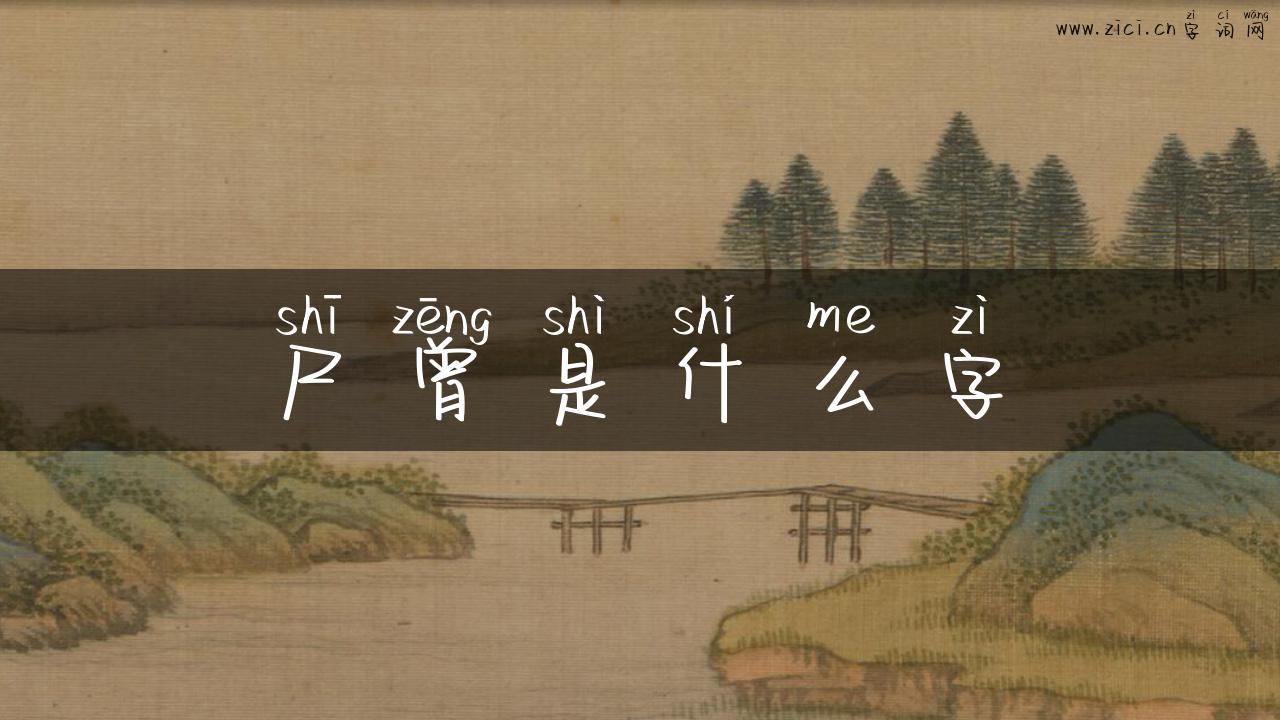 zì cí wǎng
www.zici.cn字词网
shī zēng shì shí me zì
尸曾是什么字